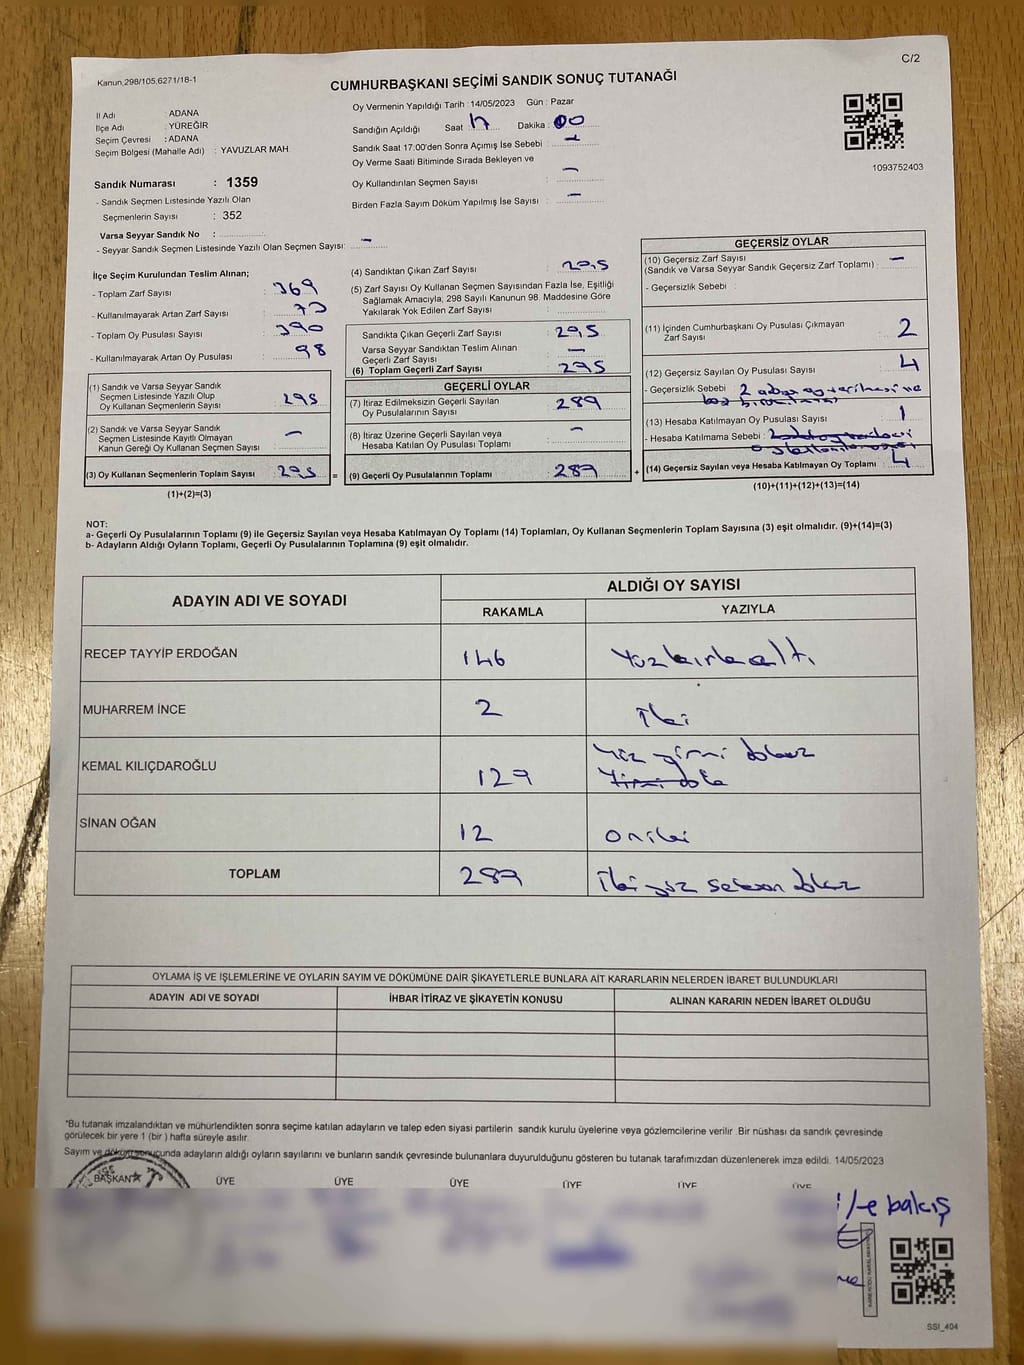 Kanun.298/105,6271/18-1
C/2
CUMHURBAŞKANI SEÇİMİ SANDIK SONUÇ TUTANAĞI
İl Adı : ADANA
İlçe Adı : YÜREĞİR
Seçim Çevresi : ADANA
Seçim Bölgesi (Mahalle Adı) : YAVUZLAR MAH.
Sandık Numarası : 1359
- Sandık Seçmen Listesinde Yazılı Olan
Seçmenlerin Sayısı : 352
Varsa Seyyar Sandık No :
- Seyyar Sandık Seçmen Listesinde Yazılı Olan Seçmen Sayısı: -
Oy Vermenin Yapıldığı Tarih : 14/05/2023 Gün : Pazar
Sandığın Açıldığı Saat 17 Dakika : 00
Sandık Saat 17:00'den Sonra Açımış İse Sebebi : -
Oy Verme Saati Bitiminde Sırada Bekleyen ve
Oy Kullandırılan Seçmen Sayısı : -
Birden Fazla Sayım Döküm Yapılmış İse Sayısı : -
1093752403
İlçe Seçim Kurulundan Teslim Alınan;
- Toplam Zarf Sayısı : 369
- Kullanılmayarak Artan Zarf Sayısı : 73
- Toplam Oy Pusulası Sayısı : 390
- Kullanılmayarak Artan Oy Pusulası : 98
(1) Sandık ve Varsa Seyyar Sandık
Seçmen Listesinde Yazılı Olup
Oy Kullanan Seçmenlerin Sayısı : 295
(2) Sandık ve Varsa Seyyar Sandık
Seçmen Listesinde Kayıtlı Olmayan
Kanun Gereği Oy Kullanan Seçmen Sayısı : -
(3) Oy Kullanan Seçmenlerin Toplam Sayısı : 295 =
(1)+(2)=(3)
(4) Sandıktan Çıkan Zarf Sayısı : 295
(5) Zarf Sayısı Oy Kullanan Seçmen Sayısından Fazla İse, Eşitliği
Sağlamak Amacıyla; 298 Sayılı Kanunun 98. Maddesine Göre
Yakılarak Yok Edilen Zarf Sayısı :
Sandıkta Çıkan Geçerli Zarf Sayısı : 295
Varsa Seyyar Sandıktan Teslim Alınan
Geçerli Zarf Sayısı : -
(6) Toplam Geçerli Zarf Sayısı : 295
GEÇERLİ OYLAR
(7) İtiraz Edilmeksizin Geçerli Sayılan
Oy Pusulalarının Sayısı : 289
(8) İtiraz Üzerine Geçerli Sayılan veya
Hesaba Katılan Oy Pusulaları Toplamı : -
(9) Geçerli Oy Pusulalarının Toplamı : 289 +
GEÇERSİZ OYLAR
(10) Geçersiz Zarf Sayısı
(Sandık ve Varsa Seyyar Sandık Geçersiz Zarf Toplamı) : -
- Geçersizlik Sebebi :
(11) İçinden Cumhurbaşkanı Oy Pusulası Çıkmayan
Zarf Sayısı : 2
(12) Geçersiz Sayılan Oy Pusulası Sayısı : 4
- Geçersizlik Sebebi : 2
(13) Hesaba Katılmayan Oy Pusulası Sayısı : 1
- Hesaba Katılmama Sebebi :
(14) Geçersiz Sayılan veya Hesaba Katılmayan Oy Toplamı : 4
(10)+(11)+(12)+(13)=(14)
NOT:
a- Geçerli Oy Pusulalarının Toplamı (9) ile Geçersiz Sayılan veya Hesaba Katılmayan Oy Toplamı (14) Toplamları, Oy Kullanan Seçmenlerin Toplam Sayısına (3) eşit olmalıdır. (9)+(14)=(3)
b- Adayların Aldığı Oyların Toplamı, Geçerli Oy Pusulalarının Toplamına (9) eşit olmalıdır.
ADAYIN ADI VE SOYADI
ALDIĞI OY SAYISI
RAKAMLA YAZIYLA
RECEP TAYYİP ERDOĞAN 146 Yüzkırkaltı
MUHARREM İNCE 2 İki
KEMAL KILIÇDAROĞLU 129 Yüz yirmi dokuz
SİNAN OĞAN 12 oniki
TOPLAM 289 İkiyüz seksen dokuz
OYLAMA İŞ VE İŞLEMLERİNE VE OYLARIN SAYIM VE DÖKÜMÜNE DAİR ŞİKAYETLERLE BUNLARA AİT KARARLARIN NELERDEN İBARET BULUNDUKLARI
ADAYIN ADI VE SOYADI İHBAR İTİRAZ VE ŞİKAYETİN KONUSU ALINAN KARARIN NEDEN İBARET OLDUĞU
*Bu tutanak imzalandıktan ve mühürlendikten sonra seçime katılan adayların ve talep eden siyasi partilerin sandık kurulu üyelerine veya gözlemcilerine verilir. Bir nüshası da sandık çevresinde
görülecek bir yere 1 (bir ) hafta süreyle asılır.
Sayım ve döküm sonucunda adayların aldığı oyların sayılarını ve bunların sandık çevresinde bulunanlara duyurulduğunu gösteren bu tutanak tarafımızdan düzenlenerek imza edildi. 14/05/2023
BAŞKAN ÜYE ÜYE ÜYE ÜYE ÜYE ÜYE
bakış
SSI_404